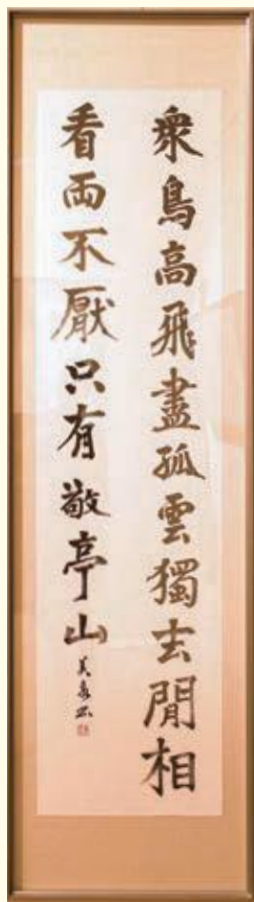 衆鳥高飛盡孤雲獨去閒相
看兩不厭只有敬亭山